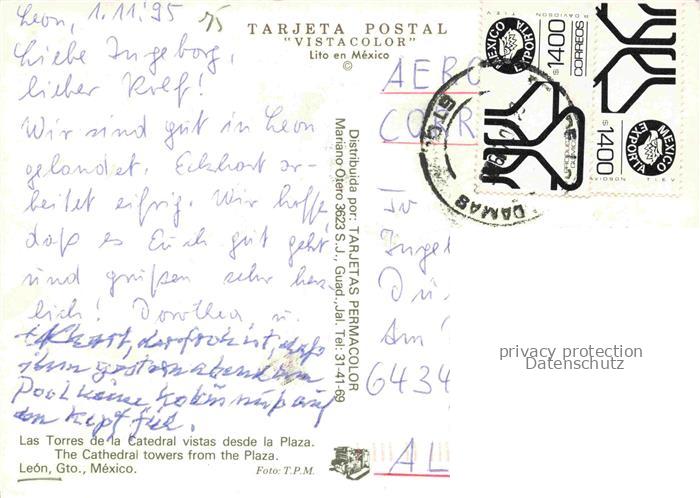 Leon, 1.11.'95
75
Liebe Ingeborg,
lieber Rolf!
Wir sind gut in Leon
gelandet. Eckhart ar-
beitet eifrig. Wir hoffe
daß es Euch gut geht
und grüßen sehr herz-
lich! Dorothea u.
Ekhart, der froh ist, daß
ihm gestern abend am
Pool keine Kokosnuß auf
den Kopf fiel.
Las Torres de la Catedral vistas desde la Plaza.
The Cathedral towers from the Plaza.
León, Gto., México.
Foto: T.P.M.
TARJETA POSTAL
"VISTACOLOR"
Lito en México
©
Distribuida por: TARJETAS PERMACOLOR
Mariano Otero 3623 S.J., Guad., Jal. Tel: 31-41-69
AERO
CORR
Inge
Dü
Am
6434
AL
MEXICO
EXPORTA
$1400
CORREOS
R. DAVIDSON
T.I.E.V.
MEXICO
EXPORTA
$1400
DAVIDSON
T.I.E.V.
DAMAS
GTO.
privacy protection
Datenschutz